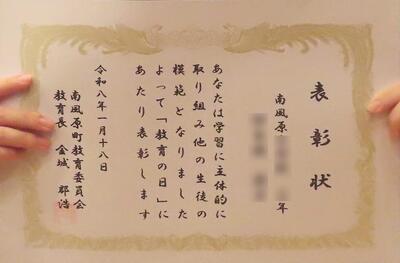 表彰状
南風原
年
あなたは学習に主体的に
取り組み他の生徒の
模範となりました
よって「教育の日」に
あたり表彰します
令和八年一月十八日
南風原町教育委員会
教育長 金城 郡浩